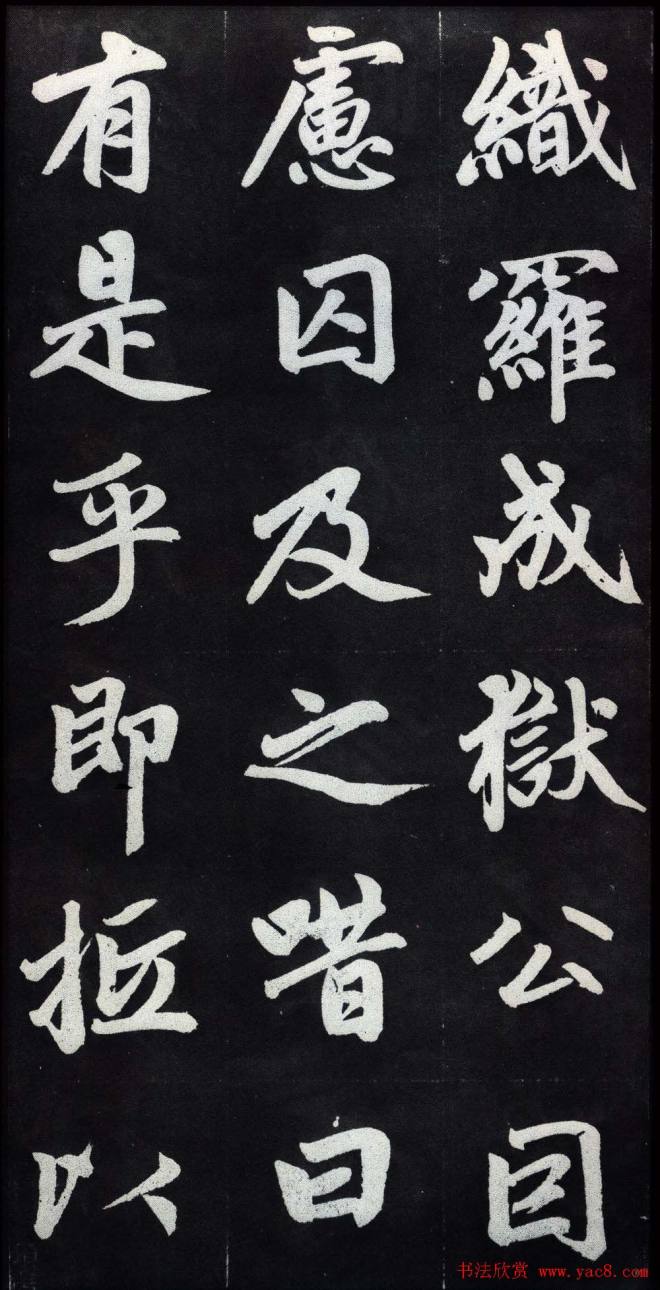 織羅成獄公因
慮囚及之唶曰
有是乎即抵以
书法欣赏 www.yac8.com